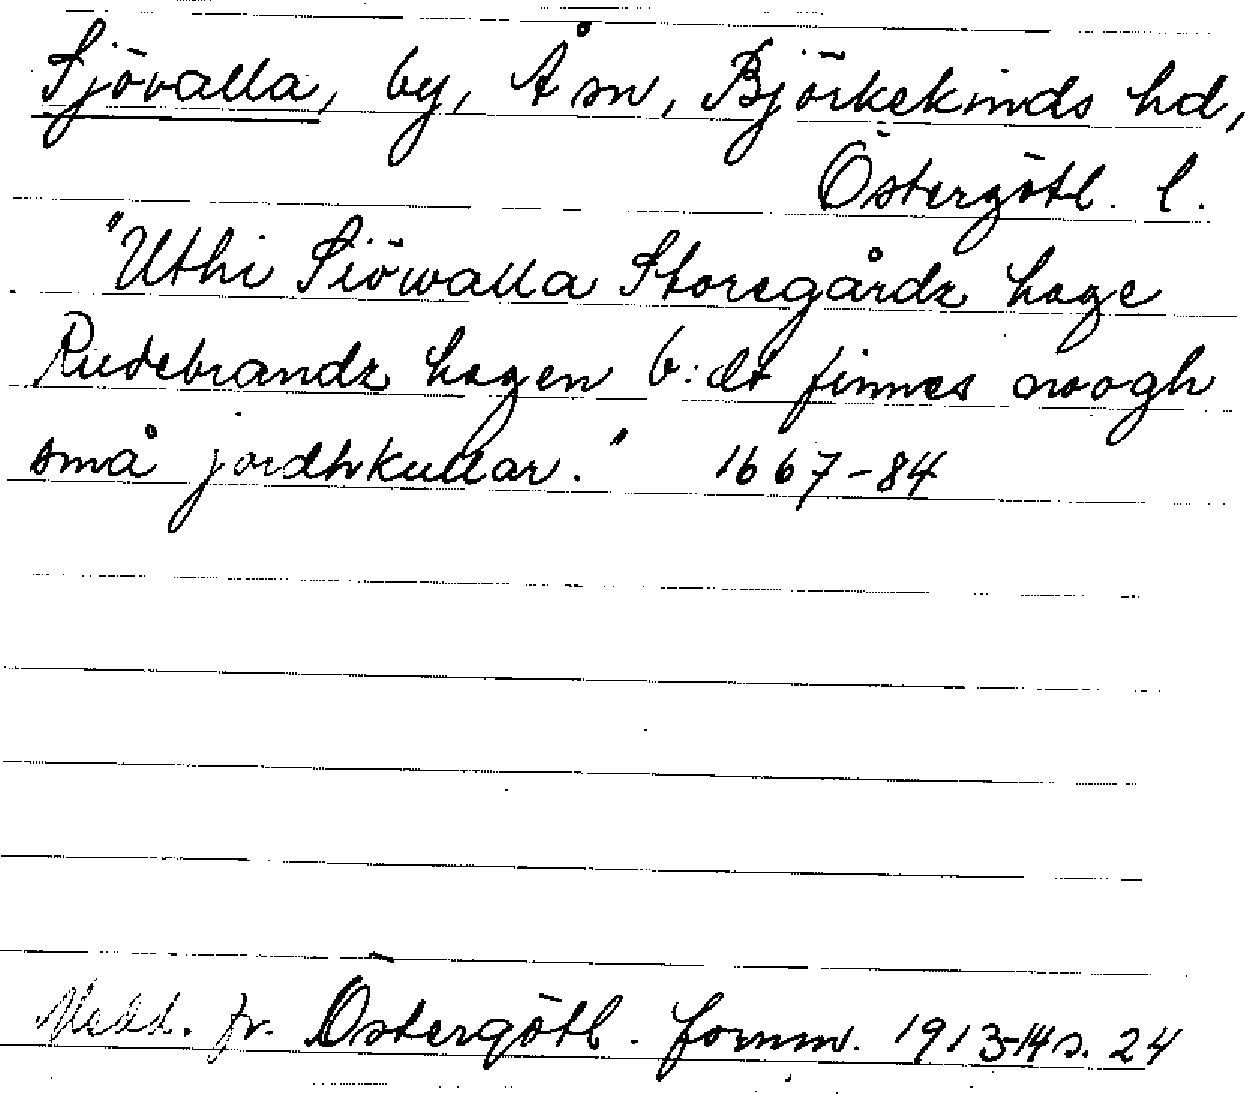 Sjövalla, by, Å sn, Björkekinds hd,
Östergötl. l.
"Uthi Siöwalla Storegårdz hage
Rudebrandz hagen b:dt finnes noogh
små jordhkullar." 1667-84
Medd. fr. Östergötl. fornm. 1913-14 s. 24